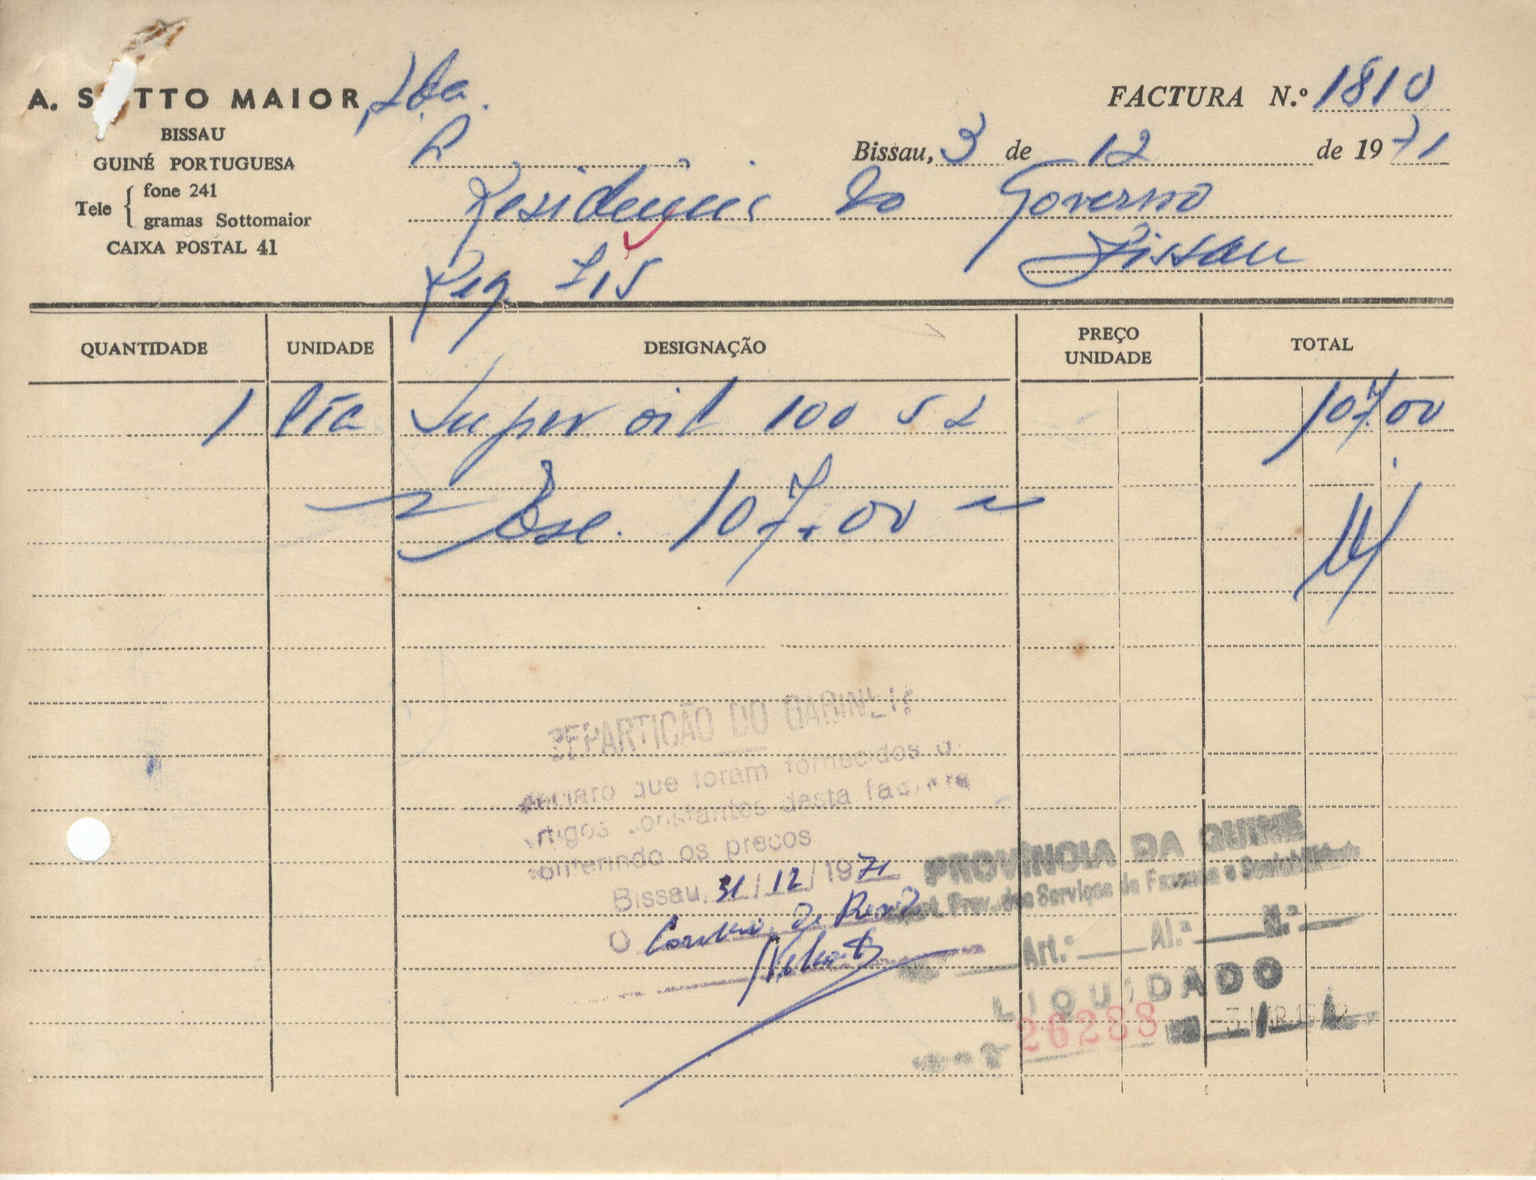 A. SOTTO MAIOR, Lda.
BISSAU
GUINÉ PORTUGUESA
Tele { fone 241
gramas Sottomaior
CAIXA POSTAL 41
FACTURA N.º 1810
Bissau, 3 de 12 de 1971
Residência do Governo
Bissau
Req 715
QUANTIDADE UNIDADE DESIGNAÇÃO PREÇO UNIDADE TOTAL
1 lta Super oil 100 5 L 107.00
Esc. 107.00
REPARTIÇÃO DO GABINETE
Declaro que foram fornecidos os
artigos constantes desta factura
conferindo os preços
Bissau, 31/12/1971
O
PROVÍNCIA DA GUINÉ
Prov. dos Serviços de Fazenda e Contabilidade
Art.º Al.ª N.º
LIQUIDADO
26283